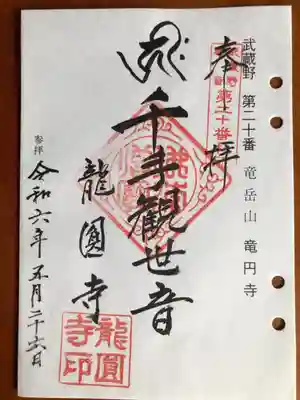 武蔵野 第二十番 竜岳山 竜円寺
奉拝
第二十番
千手観世音
龍圓寺
参拝 令和六年五月二十六日
龍圓
寺印